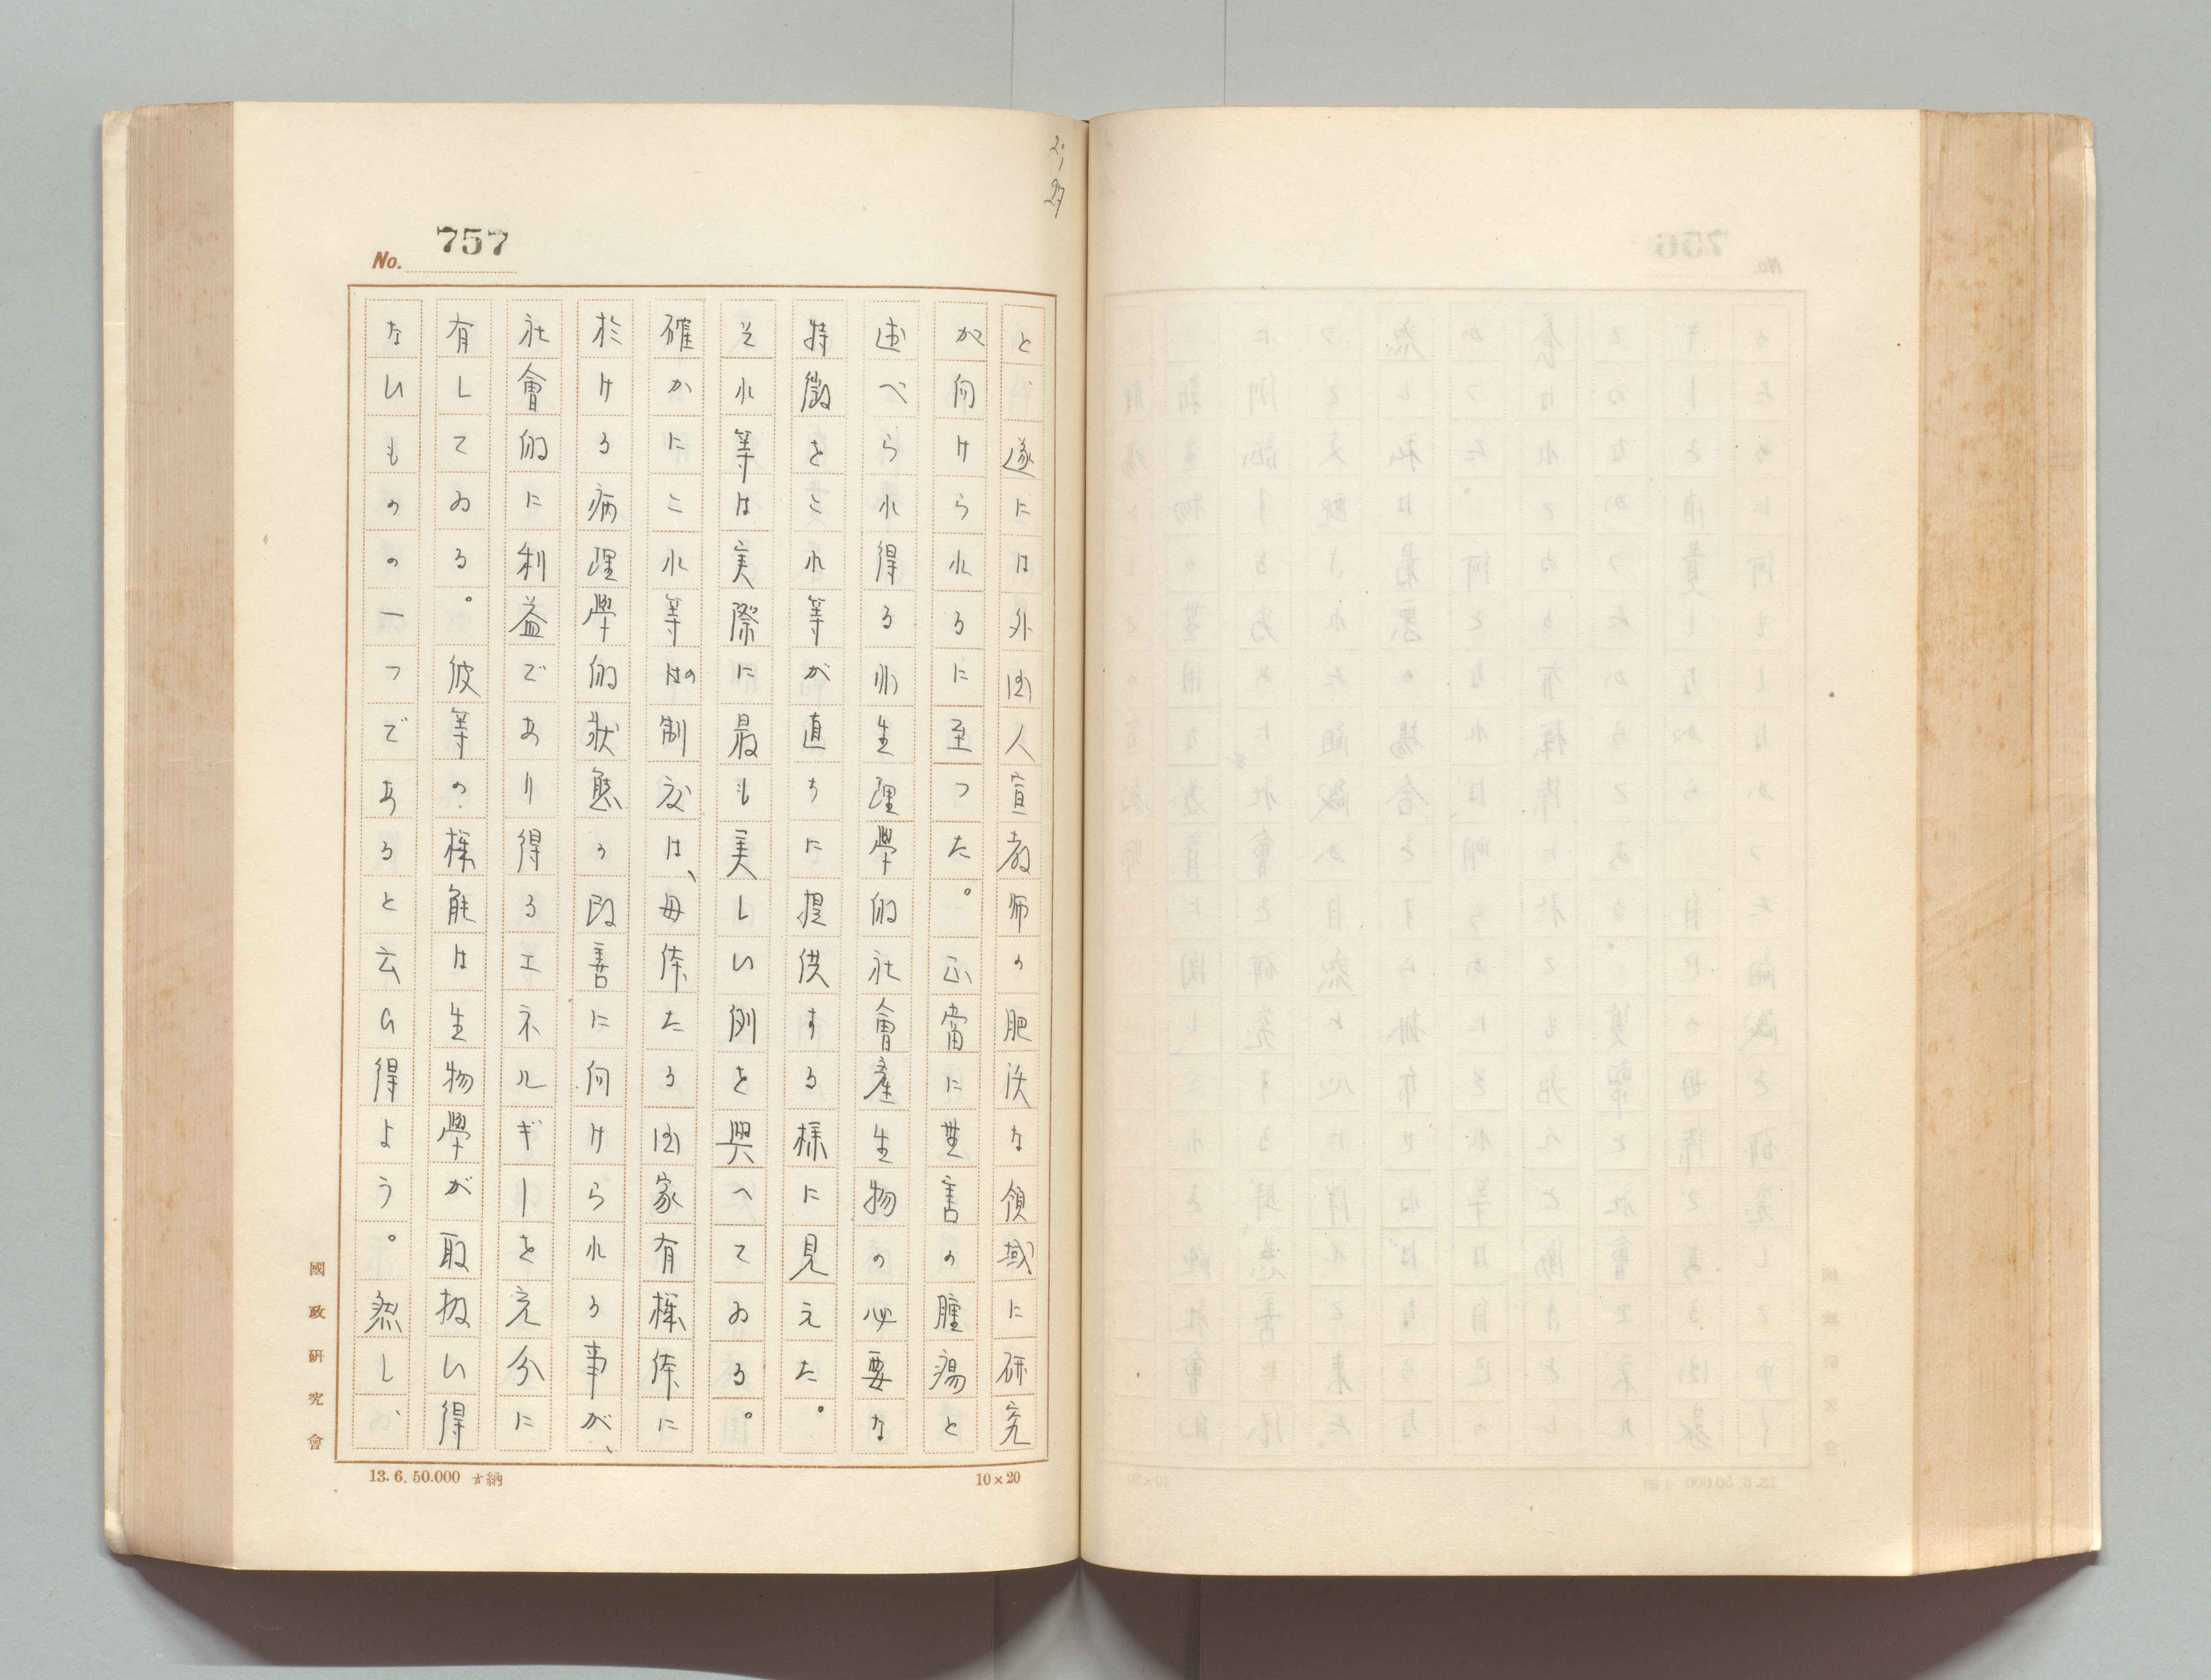 2,
27
No. 757
と、遂には外国人宣教師の肥沃な領域に研究
が向けられるに至つた。正當に無害の腫瘍と
述べられ得る非生理學的社會產生物の必要な
特徴をこれ等が直ちに提供する様に見えた。
それ等は実際に最も美しい例を與へてゐる。
確かにこれ等の制度は、母体たる国家有機体に
於ける病理學的狀態の改善に向けられる事が、
社會的に利益であり得るエネルギーを充分に
有してゐる。彼等の機能は生物學が取扱い得
ないものの一つであると云ひ得よう。然し、
國政研究會
13.6.50.000 納
10×20